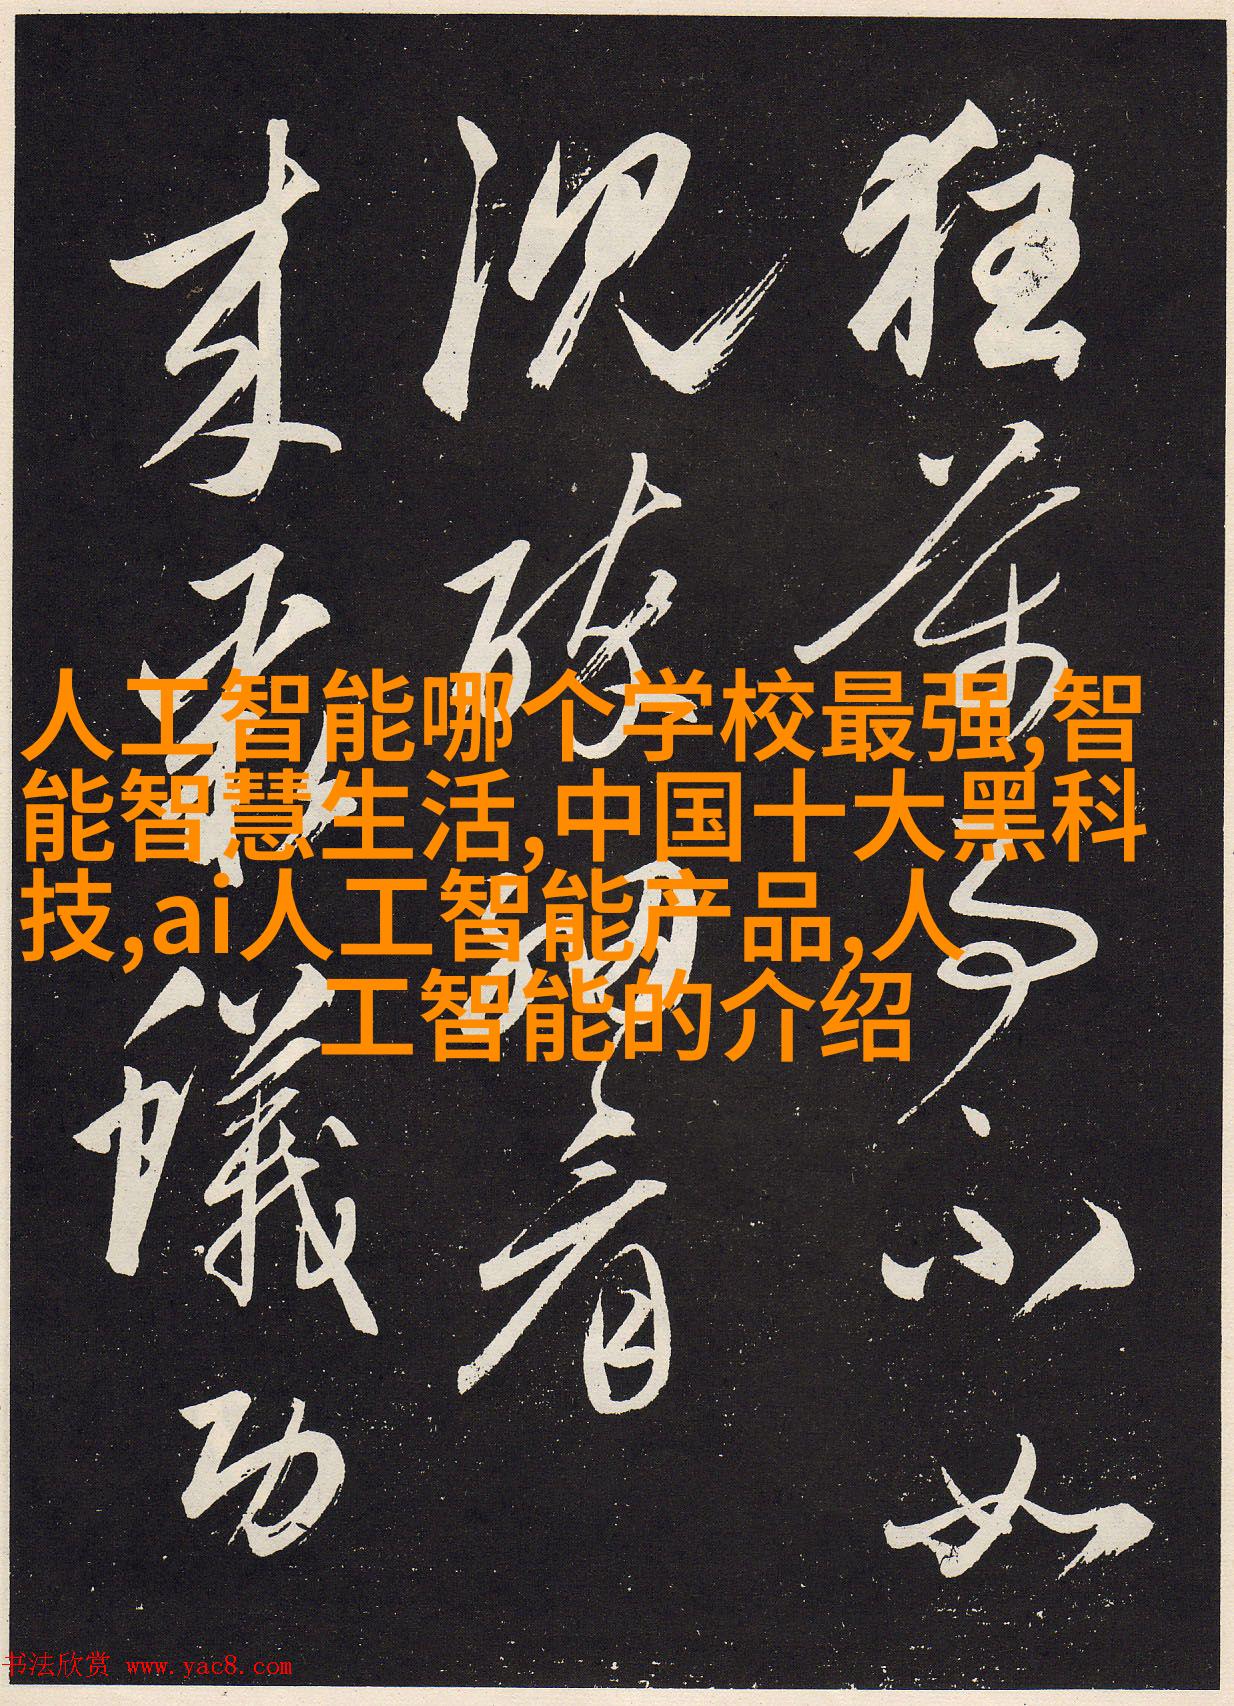 人工智能哪个学校最强,智
能智慧生活,中国十大黑科
技,ai人工智能产品,人
工智能的介绍
狂不如
況看
来蟻功
书法欣赏 www.yac8.com